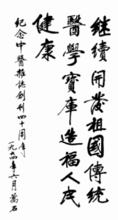 继续开发祖国传统
医学宝库造福人民
健康
纪念中医杂志创刊四十周年
一九九四年六月 万石